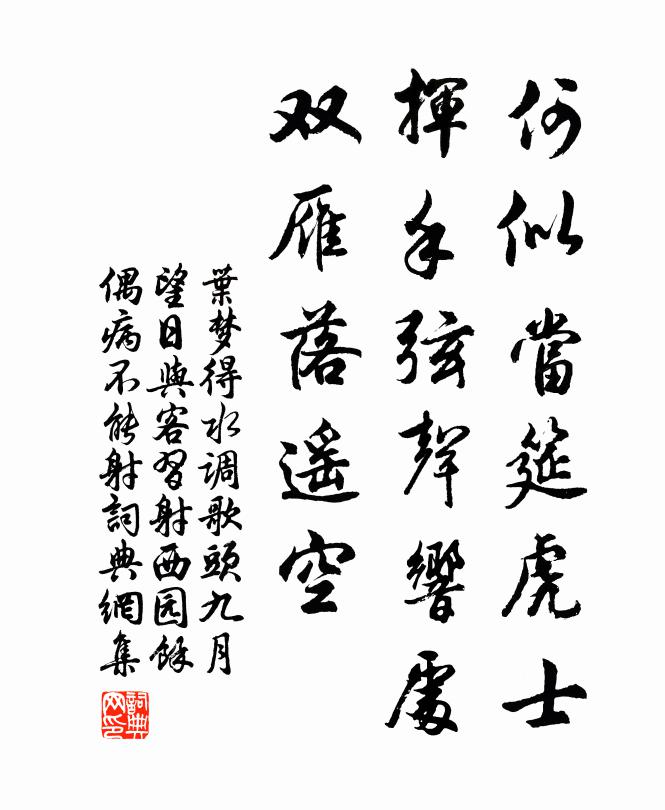 何似當筵虎士
揮手弦聲響處
双雁落遥空
葉梦得水调歌頭九月
望日與客習射西园馀
偶病不能射詞典網集
詞典
网印